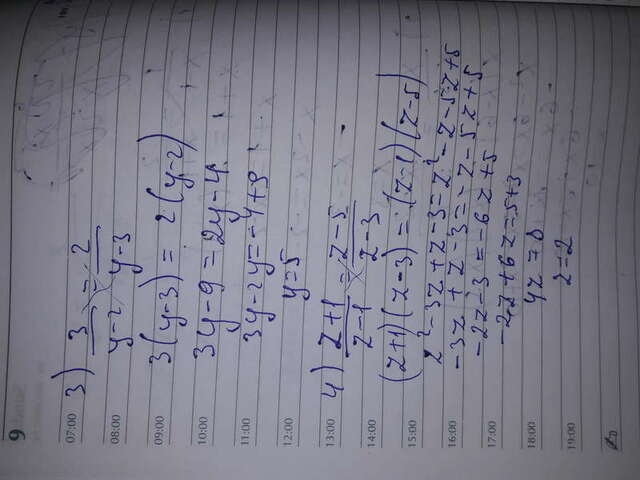 9
07:00 3) 3/(y-2) = 2/(y-3)
08:00
09:00 3(y-3) = 2(y-2)
10:00 3y-9=2y-4
11:00 3y-2y=-4+9
12:00 y=5
13:00 4) (z+1)/(z-1) = (z-5)/(z-3)
14:00
(z+1)(z-3) = (z-1)(z-5)
15:00
z²-3z+z-3=z²-z-5z+5
16:00 -3z+z-3=-z-5z+5
-2z-3=-6z+5
17:00
-2z+6z=5+3
18:00 4z=8
z=2
19:00